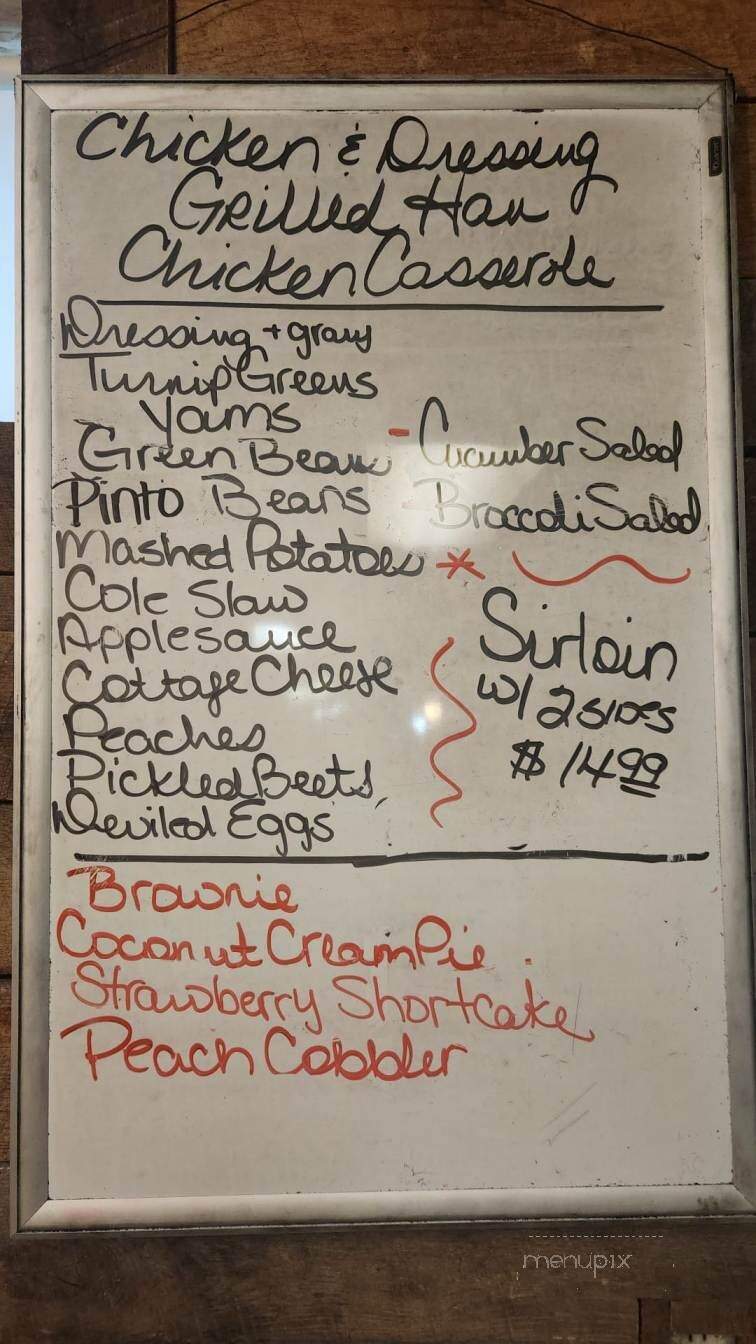 Chicken & Dressing
Grilled Ham
Chicken Casserole
Dressing + gravy
Turnip Greens
Yams
Green Beans
Pinto Beans
Mashed Potatoes *
Cole Slaw
Applesauce
Cottage Cheese
Peaches
Pickled Beets
Deviled Eggs
- Cucumber Salad
- Broccoli Salad
Sirloin
w/ 2 sides
$14.99
Brownie
Coconut Cream Pie
Strawberry Shortcake
Peach Cobbler
menupix